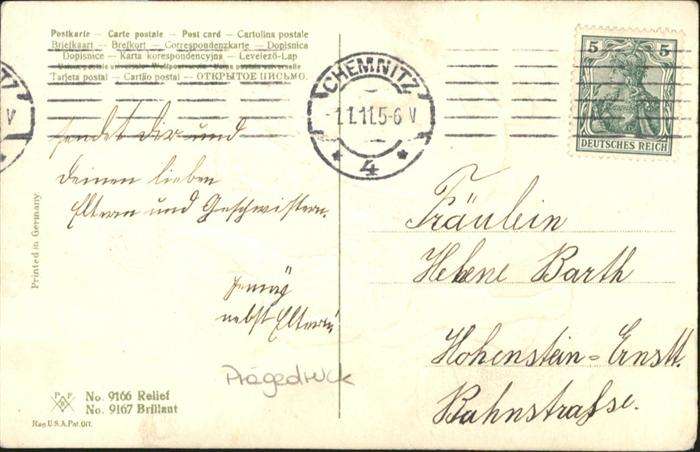 Postkarte – Carte postale – Post card – Cartolina postale
Briefkaart – Brefkort – Correspondenzkarte – Dopisnica
Dopisnice – Karta korespondencyjna – Levelező-Lap
Tarjeta postal – Cartão postal – ОТКРЫТОЕ ПИСЬМО.
CHEMNITZ
1.1.11.5-6 V
* 4 *
TZ
V
5 5
DEUTSCHES REICH
sendet Dir und
deinen lieben
Eltern und Geschwistern.
nebst Eltern
Fräulein
Helene Barth
Hohenstein=Ernstt.
Bahnstrasse.
Prägedruck
Printed in Germany
No. 9166 Relief
No. 9167 Brillant
Reg U.S.A. Pat. Off.